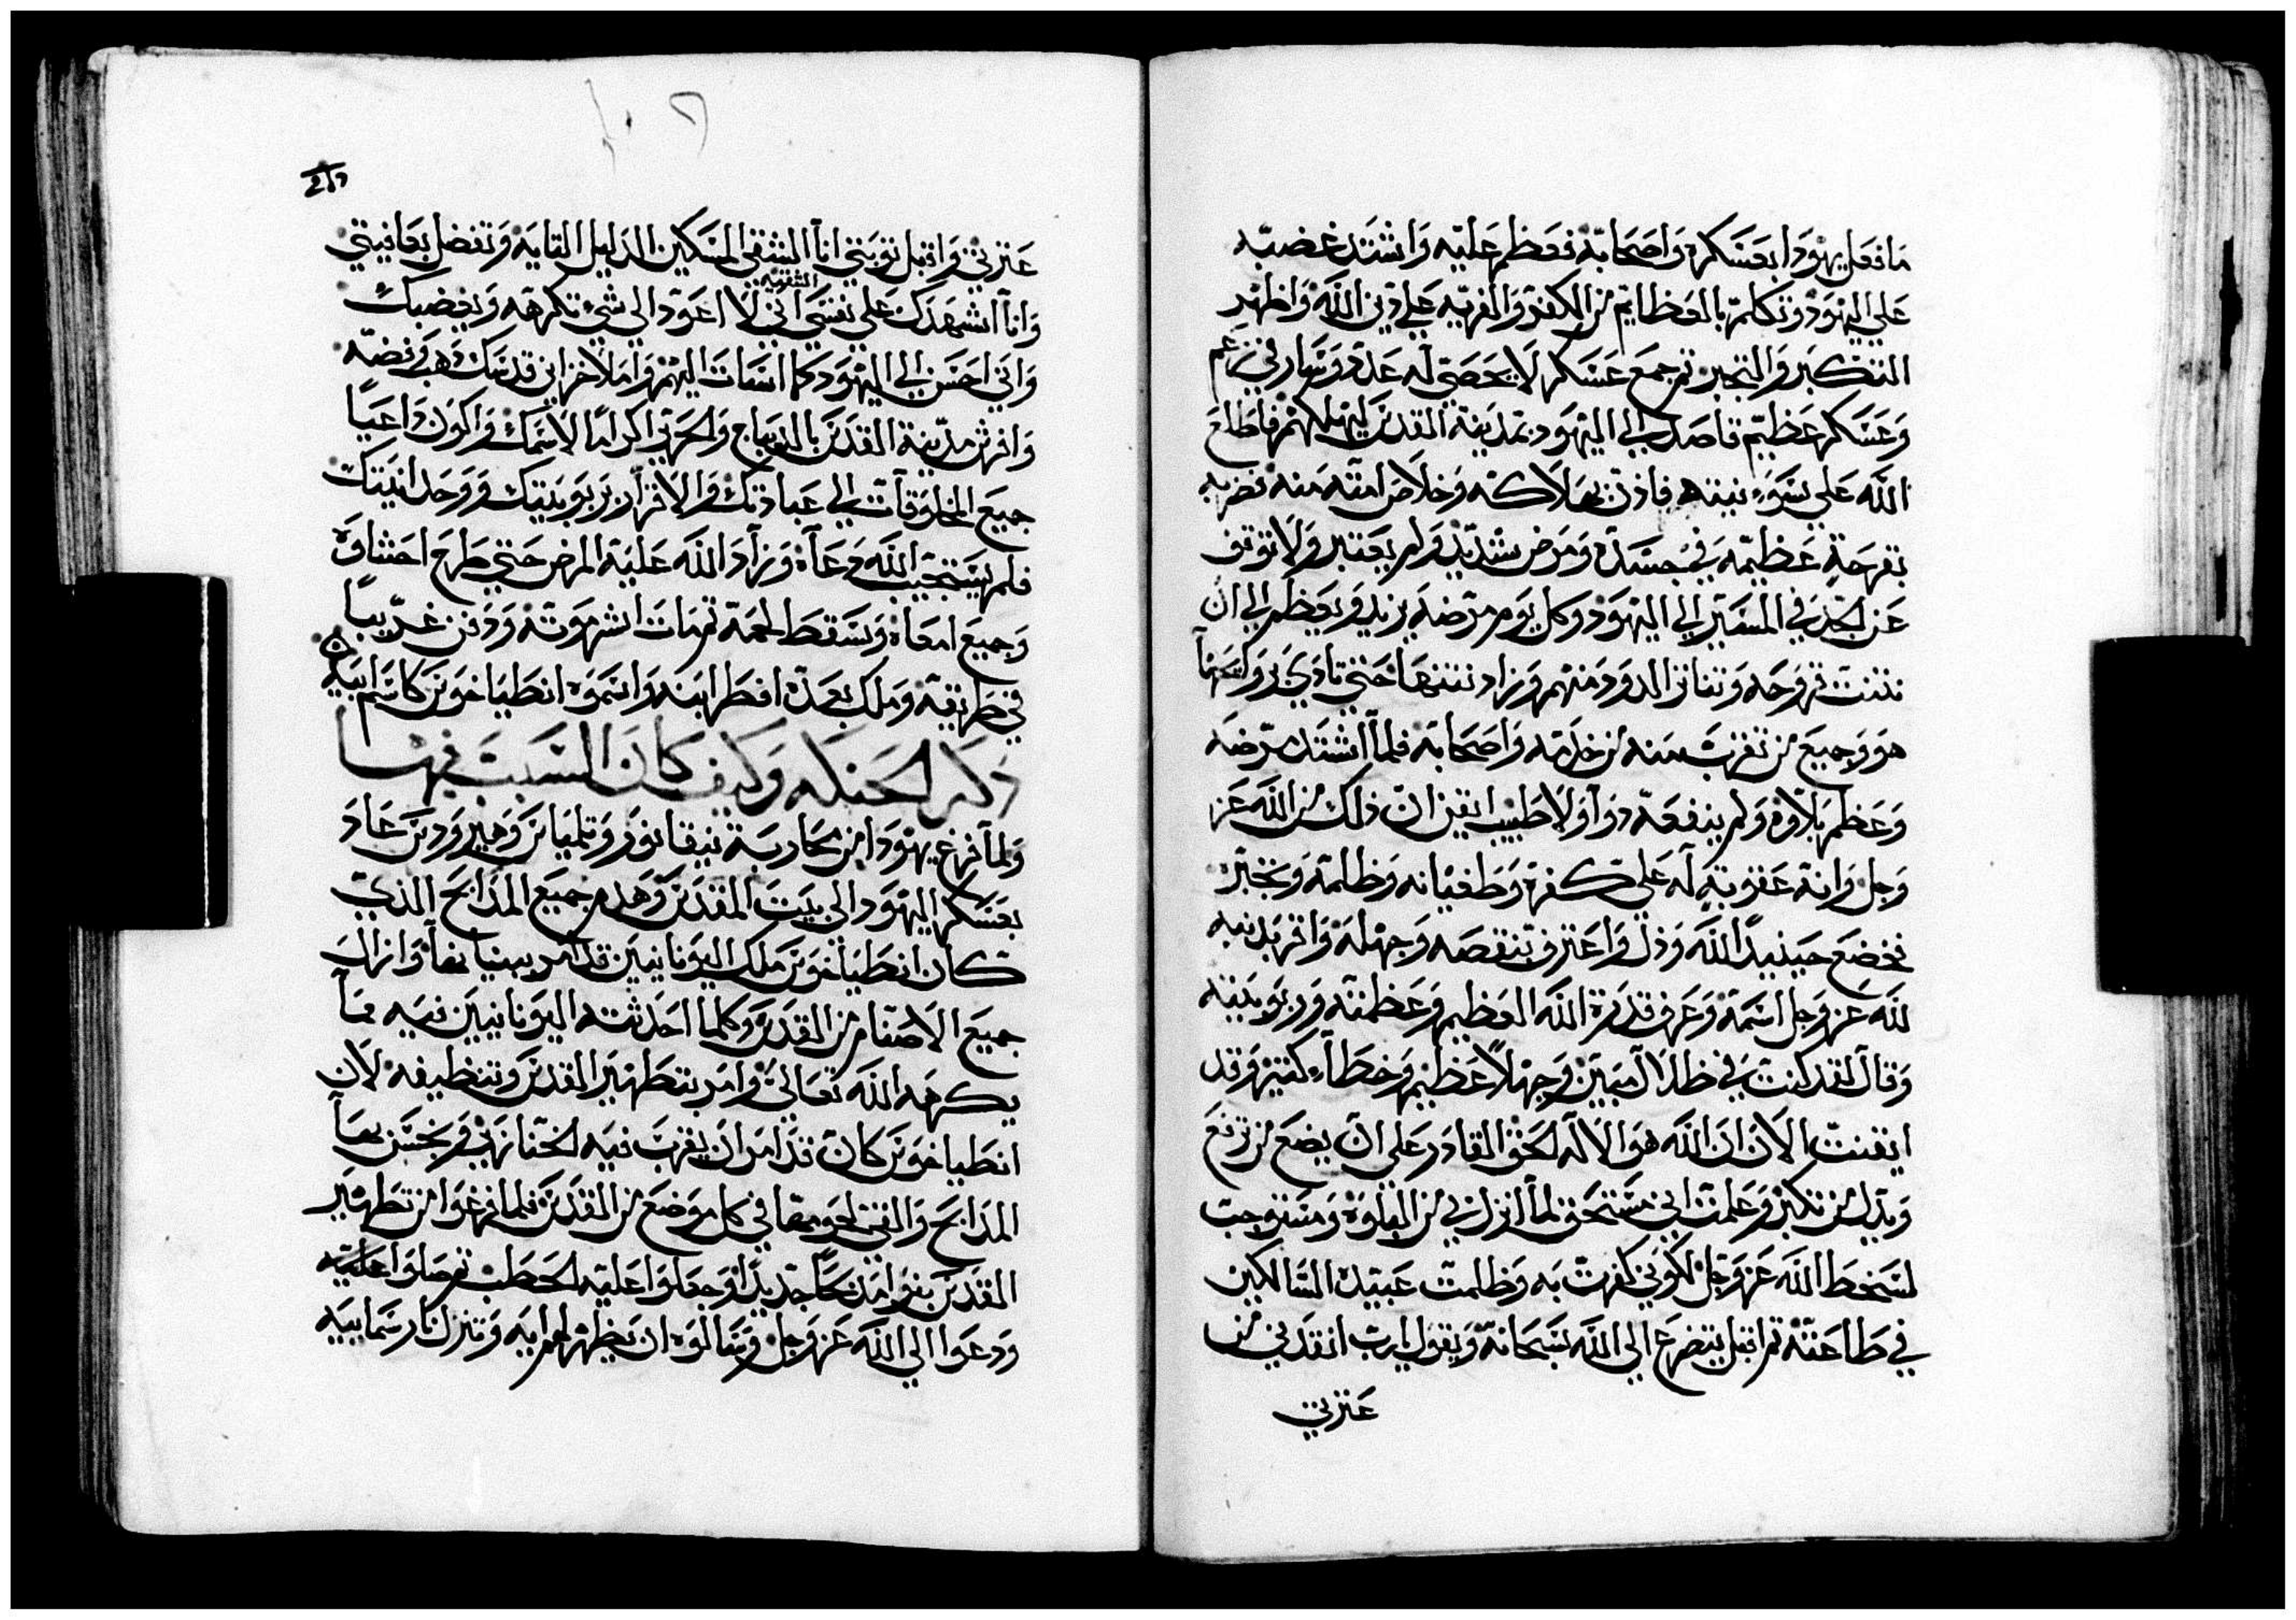 ما فعل يهودا بعسكره واصحابه فعظم عليه واشتد غضبه
علي اليهود وتكلم بالعظايم من الكفر والفريه علي دين الله واظهر
التكبر والتجبر ثم جمع عسكر لا يحصي له عدد وسار في
وعسكر عظيم قاصد الي اليهود بمدينة القدس ليهلكهم فاطلع
الله علي سوء نيته فاذن بهلاكه وخلاص امته منه فضربه
بقرحة عظيمه في جسده ومرض شديد ولم يعتبر ولا توقف
عن الجد في المسير الي اليهود وكل يوم مرضه يزيد ويعظم الي ان
نتنت قروحه وتناثر الدود منهم وزاد نتنها حتي تاذي
هو وجميع من تقرب منه من خدمه واصحابه فلما اشتد مرضه
وعظم بلاوه ولم ينفعه دوا ولا طبيب ايقن ان ذلك من الله عز
وجل وانه عقوبة له علي كفره وطغيانه وظلمه وتجبره
فخضع حينيذ الله وذل واعترف بنقصه وجهله واقر بذنبه
لله عز وجل اسمه وعرف قدرة الله العظيم وعظمته وربوبيته
وقال لقد كنت في ظلال مبين وجهلا عظيم وخطاء كثير وقد
ايقنت الان ان الله هو الاله الحق القادر علي ان يضع من ترفع
ويذل من تكبر وعلمت اني مستحق لما انزل بي من البلوه ومستوجب
لسخط الله عز وجل لكوني كفرت به وظلمت عبيده السالكين
في طاعته ثم اقبل يتضرع الي الله سبحانه ويقول يا رب انقذني من
عثرتي
عثرتي واقبل توبتي انا الشقي المسكين الذليل التايه وتفضل بعافيتي
وانا اشهدك علي نفسي الشقيه اني لا اعود الي شي تكرهه ويغضبك
واني احسن الي اليهود كما اسات اليهم واملا خزاين قدسك ذهب وفضه
وافرش مدينة القدس بالديباج والحرير اكراما لاسمك واكون داعيا
جميع المخلوقات الي عبادتك والاقرار بربوبيتك ووحدانيتك
فلم يستجيب الله دعاه وزاد الله عليه المرض حتي طرح احشاوه
وجميع امعاه وسقط لحمه ثم مات اشر موته ودفن غريبا
في طريقه وملك بعده افطر ابنه واسموه انطياخوس كاسم ابيه
ذكر الحنكه وكيف كان السبب فيها
ولما فرغ يهودا من محاربة نيقانور وتلمياس وهيرودس عاد
بعسكر اليهود الي بيت المقدس وهدم جميع المذابح الذي
كان انطياخوس ملك اليونانيين قد امر ببنيانها وازال
جميع الاصنام من القدس وكلما احدثته اليونانيين فيه مما
يكرهه الله تعالي وامر بتطهير القدس وتنظيفه لان
انطياخوس كان قد امر ان يقرب فيه الخنازير وينجس بها
المذابح والقي لحومها في كل موضع من القدس فلما فرغوا من تطهير
القدس بنوا مذبحا جديدا وجعلوا عليه الحطب ثم صلوا عليه
ودعوا الي الله عز وجل وسالوه ان يظهر لهم ايه وتنزل نار سماييه